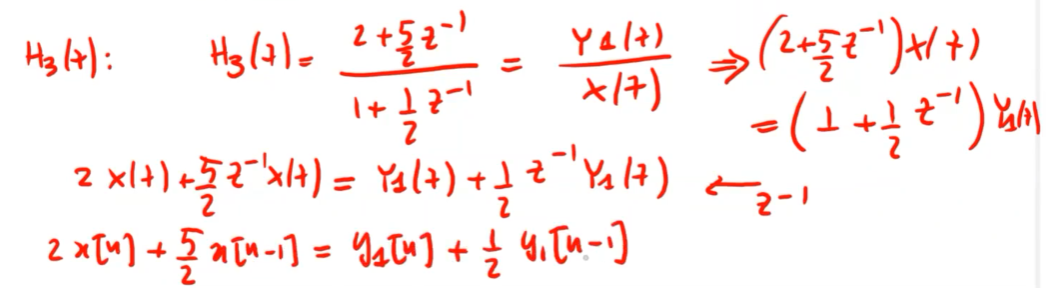 H₃(z): H₃(z) = (2 + 5/2 z⁻¹) / (1 + 1/2 z⁻¹) = Y₁(z) / X(z) ⇒ (2 + 5/2 z⁻¹) X(z)
= (1 + 1/2 z⁻¹) Y₁(z)
2 X(z) + 5/2 z⁻¹ X(z) = Y₁(z) + 1/2 z⁻¹ Y₁(z) ← z⁻¹
2 x[n] + 5/2 x[n-1] = y₁[n] + 1/2 y₁[n-1]